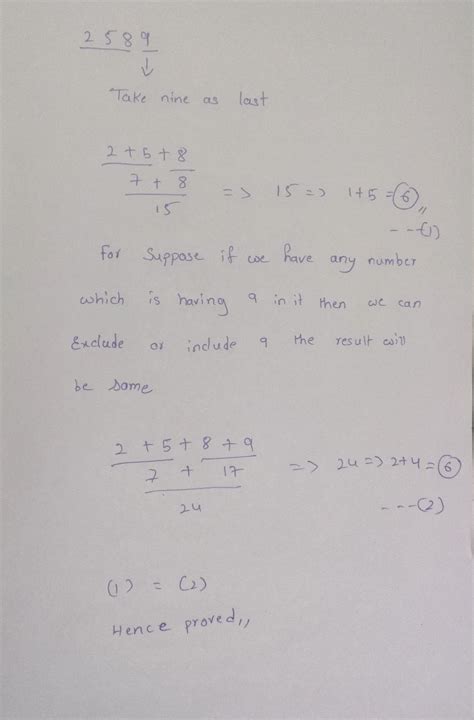 2 5 8 9
↓
Take nine as last
2 + 5 + 8
7 + 8 => 15 => 1+5 = 6,,
15
---(1)
For Suppose if we have any number
which is having 9 in it then we can
Exclude or include 9 the result will
be Same
2 + 5 + 8 + 9
7 + 17 => 24 => 2+4 = 6
24
---(2)
(1) = (2)
Hence proved,,